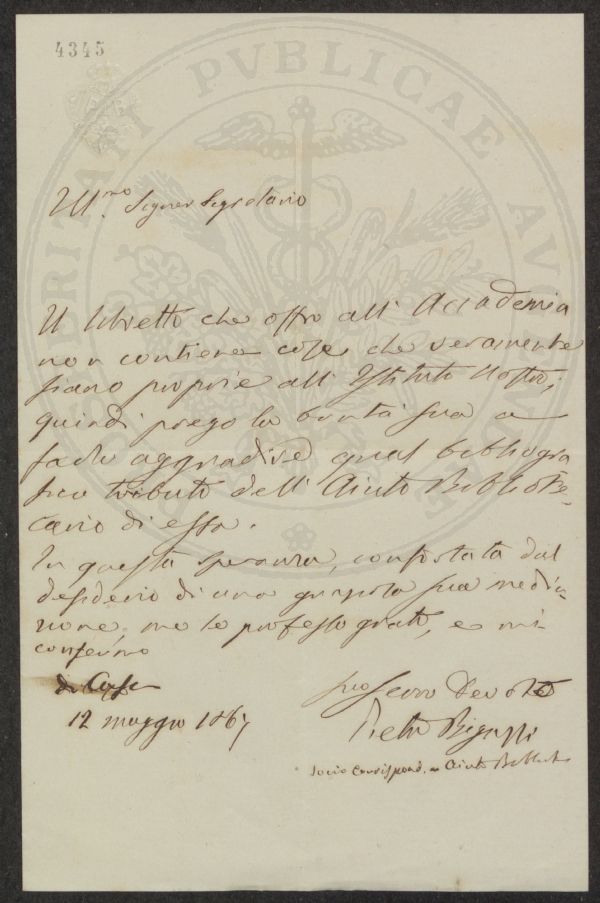 4345
PROSPERITATI PVBLICAE AVGENDAE
Ill.mo Signor Segretario
Il libretto che offro all' Accademia
non contiene cose che veramente
siano proprie all' Istituto nostro;
quindi prego la bontà sua a
farlo aggradire qual bibliogra
fico tributo dell' Aiuto Bibliote-
cario di essa.
In questa speranza, confortata dal
desiderio di una sua media-
zione, me le professo grato, e mi
confermo
di Casa
12 maggio 1867
suo servo devoto
Pietro Bigazzi
socio corrispond. e Aiuto Bibliot.